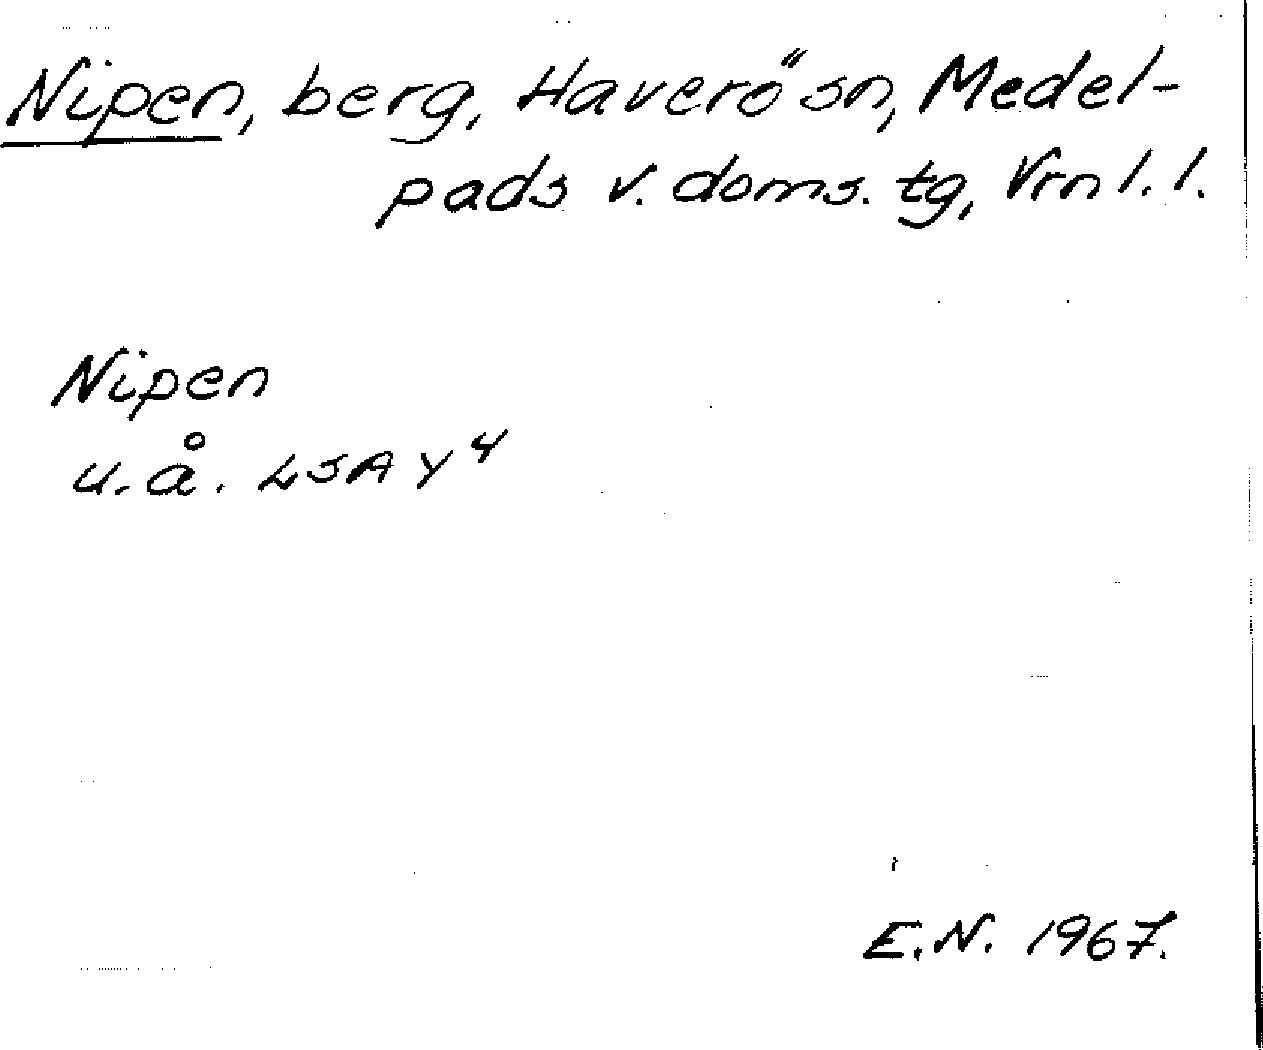 Nipen, berg, Haverö sn, Medel-
pads v. doms. tg, Vrnl. l.
Nipen
u. å. LSA Y4
E.N. 1967.